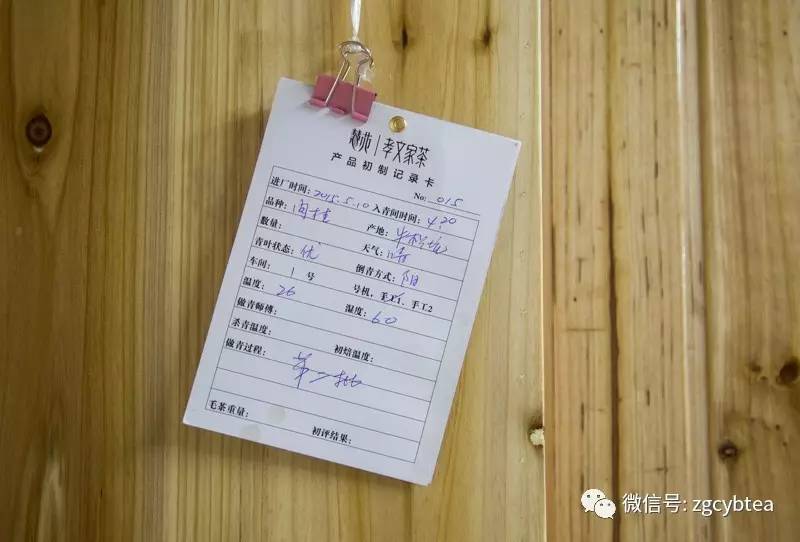 孝文家茶
产品初制记录卡
No: 015
进厂时间: 2015.5.10 入青间时间: 4.20
品种: 肉桂 产地: 牛栏坑
数量: 天气: 晴
青叶状态: 优 倒青方式: 阳
车间: 1 号 号机,手工1、手工2
温度: 26 湿度: 60
做青师傅:
杀青温度: 初焙温度:
做青过程: 第二批
毛茶重量: 初评结果:
微信号: zgcybtea